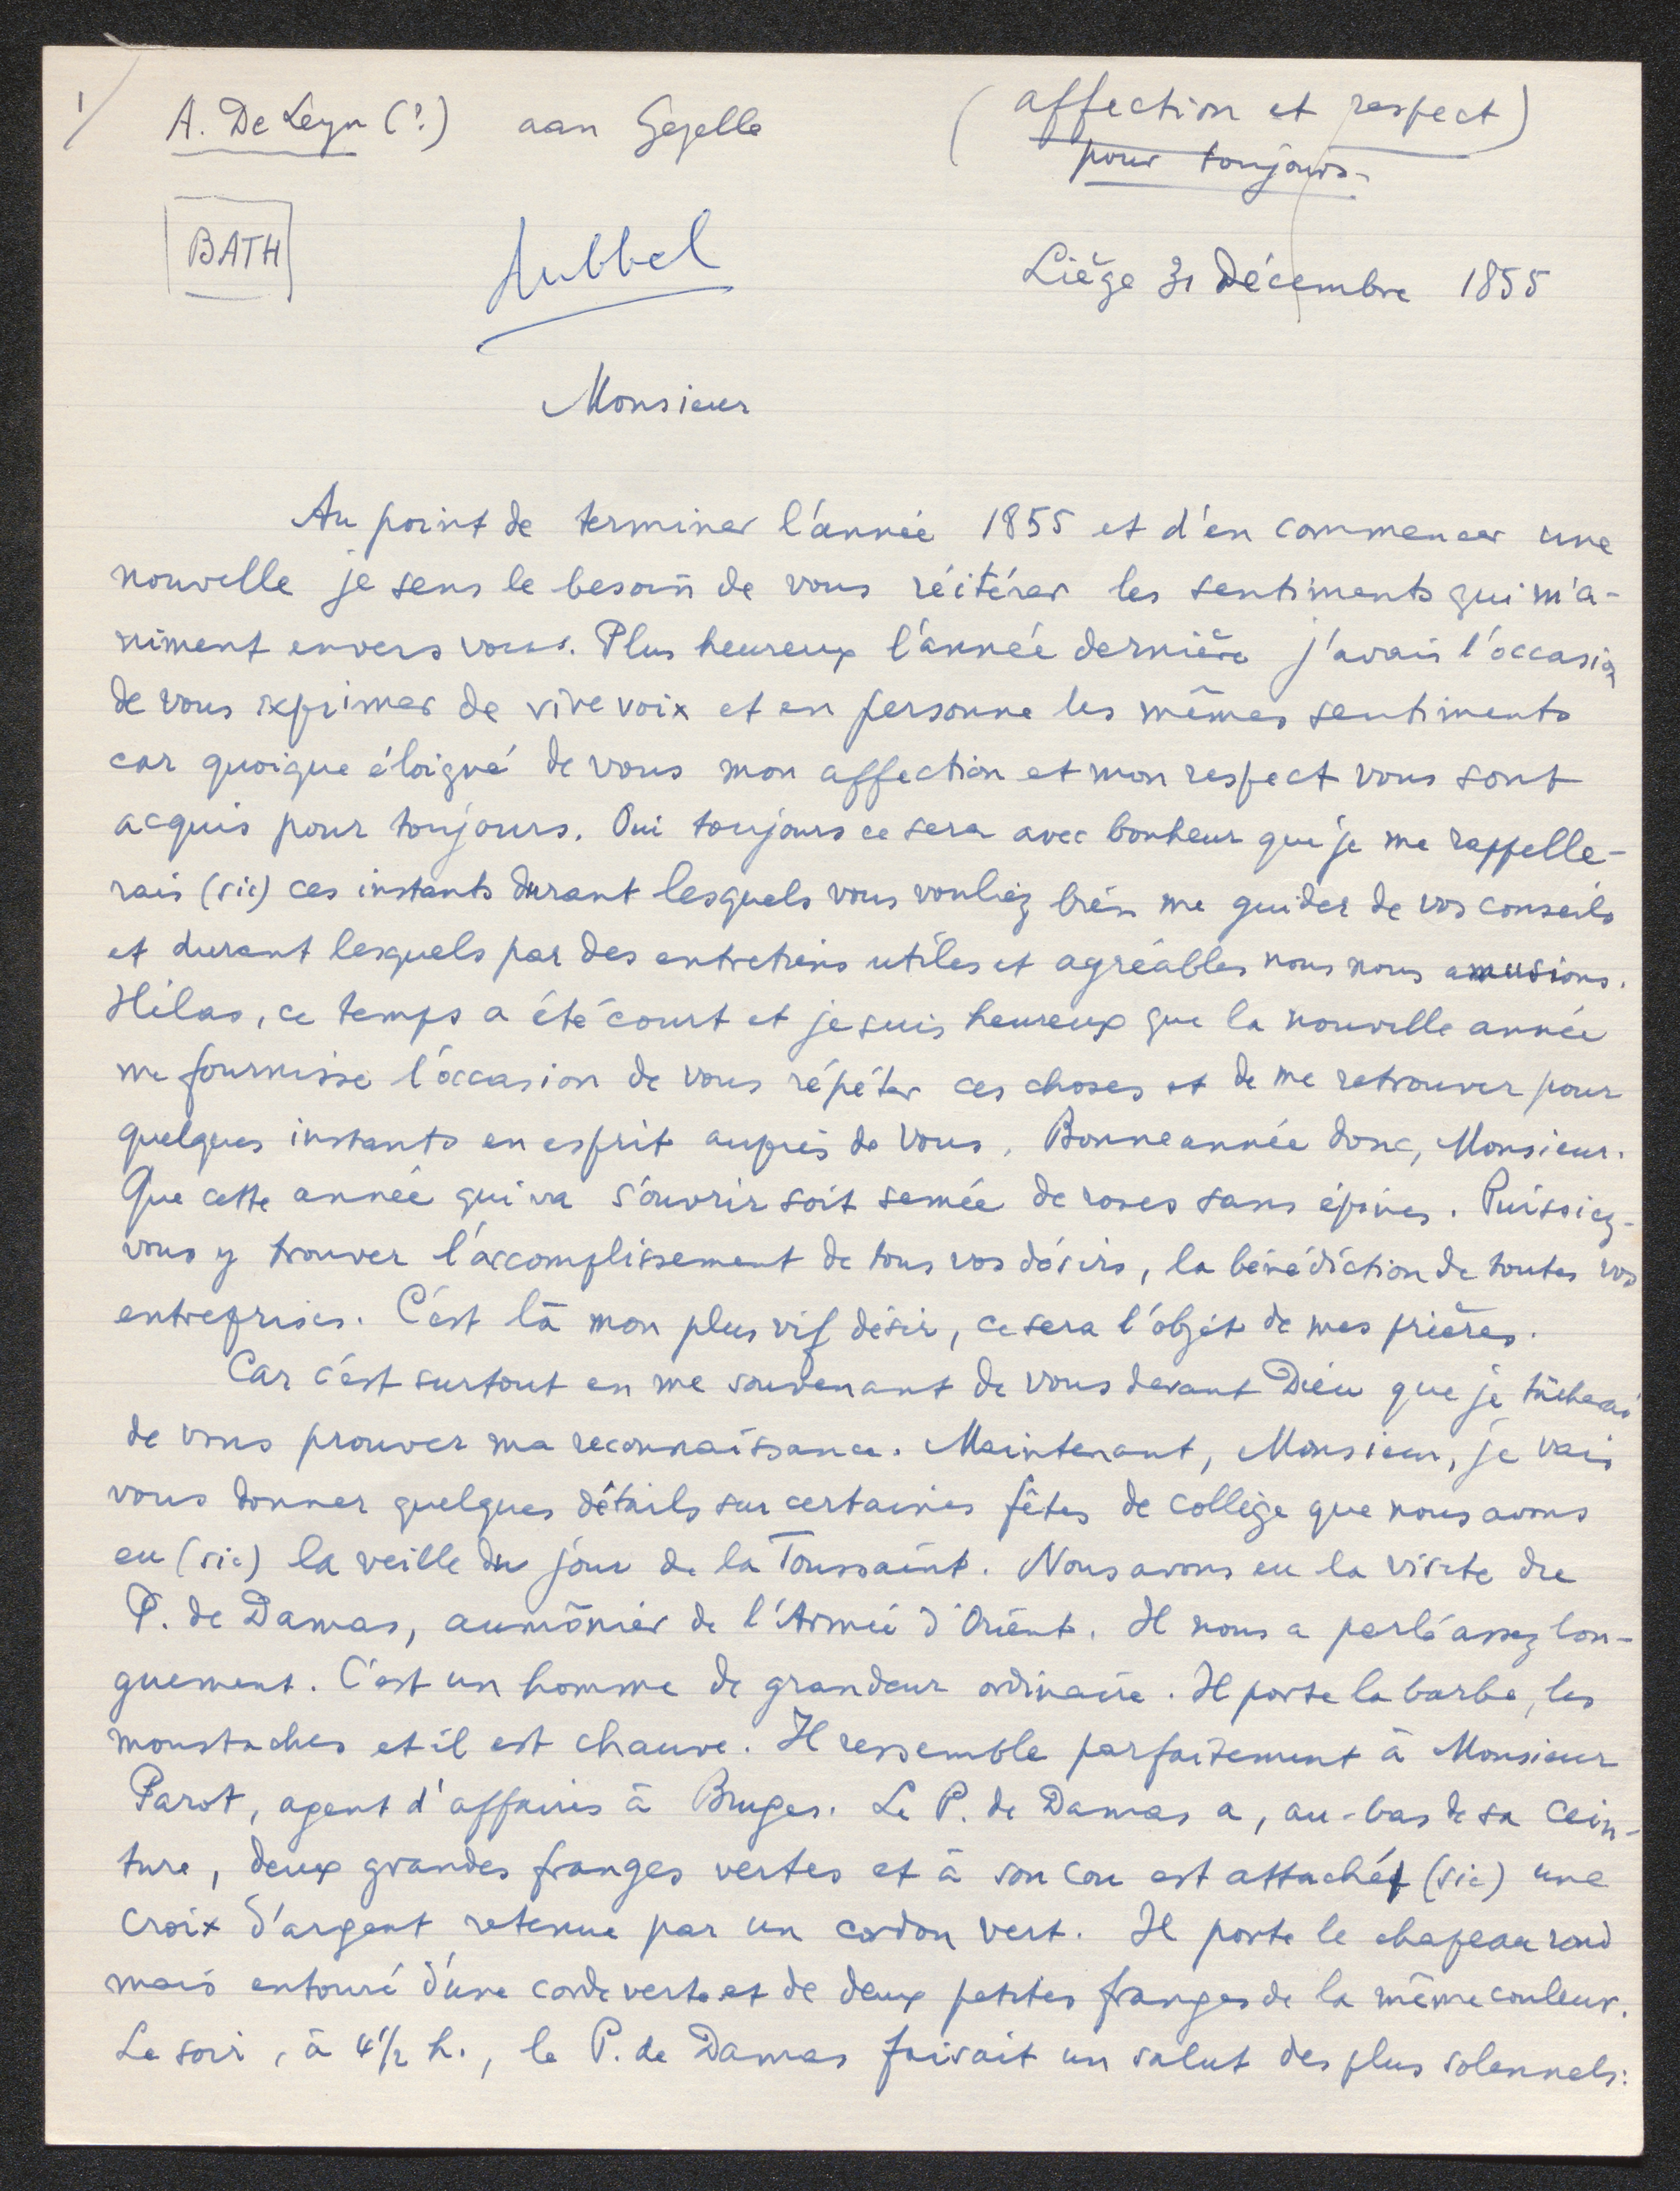 1/
A. De Leyn (?) aan Gezelle
(affection et respect)
pour toujours.
BATH
dubbel
Liège 31 Décembre 1855
Monsieur
Au point de terminer l'année 1855 et d'en commencer une
nouvelle je sens le besoin de vous réitérer les sentiments qui m'a-
niment envers vous. Plus heureux l'année dernière j'avais l'occasion
de vous exprimer de vive voix et en personne les mêmes sentiments
car quoique éloigné de vous mon affection et mon respect vous sont
acquis pour toujours. Oui toujours ce sera avec bonheur que je me rappelle-
rais (sic) ces instants durant lesquels vous vouliez bien me guider de vos conseils
et durant lesquels par des entretiens utiles et agréables nous nous amusions.
Hélas, ce temps a été court et je suis heureux que la nouvelle année
me fournisse l'occasion de vous répéter ces choses et de me retrouver pour
quelques instants en esprit auprès de vous. Bonne année donc, Monsieur.
Que cette année qui va s'ouvrir soit semée de roses sans épines. Puissiez-
vous y trouver l'accomplissement de tous vos désirs, la bénédiction de toutes vos
entreprises. C'est là mon plus vif désir, ce sera l'objet de mes prières.
Car c'est surtout en me souvenant de vous devant Dieu que je tâcherai
de vous prouver ma reconnaissance. Maintenant, Monsieur, je vais
vous donner quelques détails sur certaines fêtes de collège que nous avons
eu (sic) la veille du jour de la Toussaint. Nous avons eu la visite du
P. de Damas, aumônier de l'Armée d'Orient. Il nous a parlé assez lon-
guement. C'est un homme de grandeur ordinaire. Il porte la barbe, les
moustaches et il est chauve. Il ressemble parfaitement à Monsieur
Parot, agent d'affaires à Bruges. Le P. de Damas a, au-bas de sa cein-
ture, deux grandes franges vertes et à son cou est attaché (sic) une
croix d'argent retenue par un cordon vert. Il porte le chapeau rond
mais entouré d'une corde verte et de deux petites franges de la même couleur.
Le soir, à 4 1/2 h., le P. de Damas faisait un salut des plus solennels: